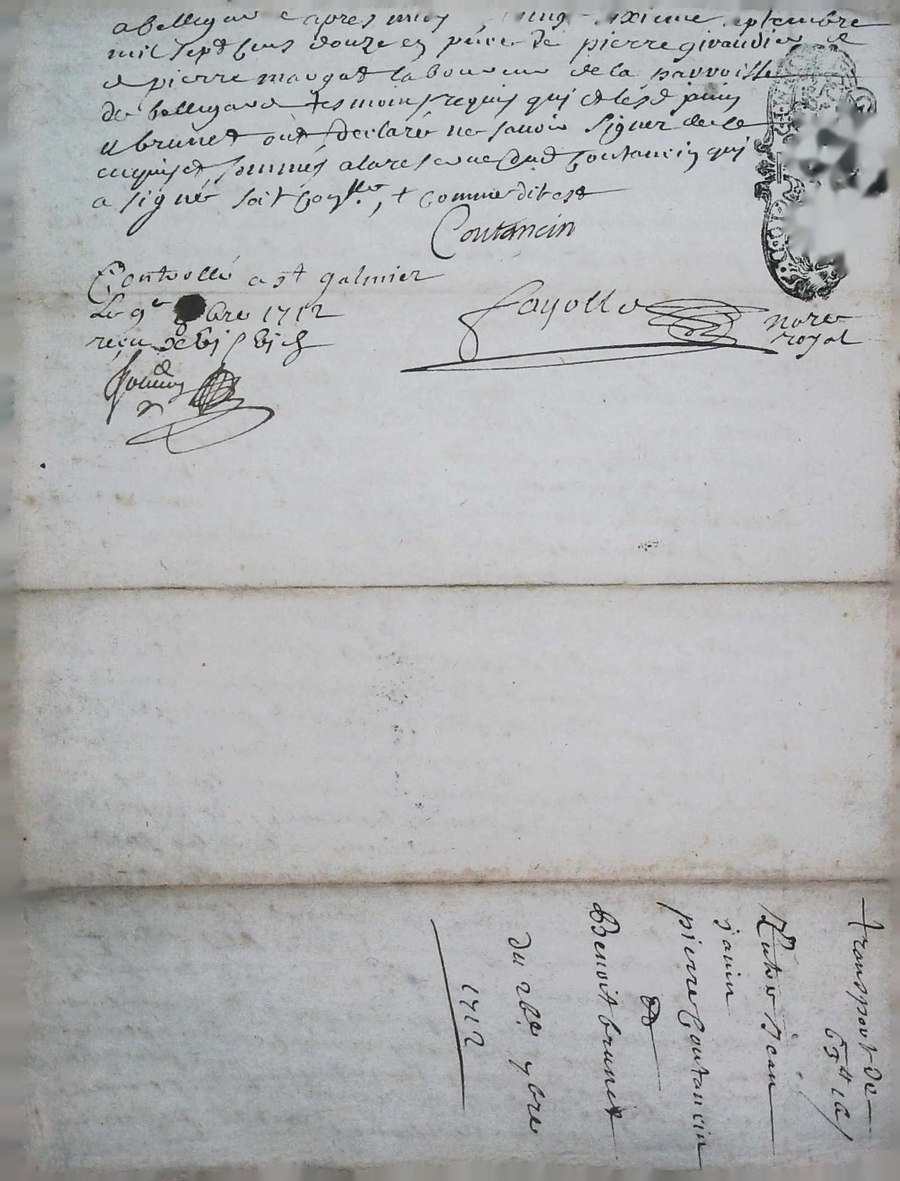 a bellegarde apres midy vingt sixieme septembre
mil sept cens douze en pnce de pierre giraudier et
de pierre maugat laboureur de la parroisse
de bellegarde tesmoins requis qui et led pierre
brunet ont declaré ne savoir signer de ce
enquis et sommés a la reserve dud Coutancin qui
a signé soit , comme dit est
Coutancin
Controllé a st galmier
Le 9e 8bre 1712
receu
Fayolle nore royal
transport de
63 tt
Jean
janin
pierre Coutancin
Benoit brunet
du 26e 7bre
1712